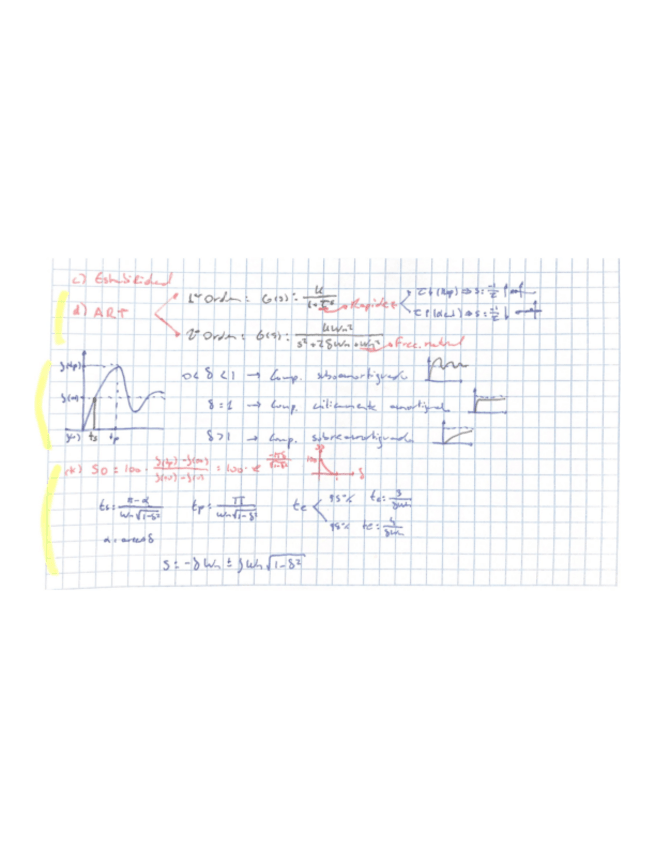 c) Estabilidad
d) ART
1er Orden: G(s): K / 1+τs → Rapidez
τ↓ (Rap) ⇒ s: -1/τ ↑
τ↑ (Lent) ⇒ s: -1/τ ↓
2º Orden: G(s): KWn² / s²+2δWn+Wn² → Frec. natural
y(tp)
y(∞)
y(-) ts tp
0<δ<1 → Comp. subamortiguado
δ=1 → Comp. críticamente amortiguado
δ>1 → Comp. sobreamortiguado
SO = 100 · y(tp)-y(∞) / y(∞)-y(-) = 100 · e^(-πδ/√1-δ²)
100 δ
ts: π-α / Wn√1-δ²
tp: π / Wn√1-δ²
te < 95%
98%
α: arccos δ
S: -δWn ± jWn√1-δ²